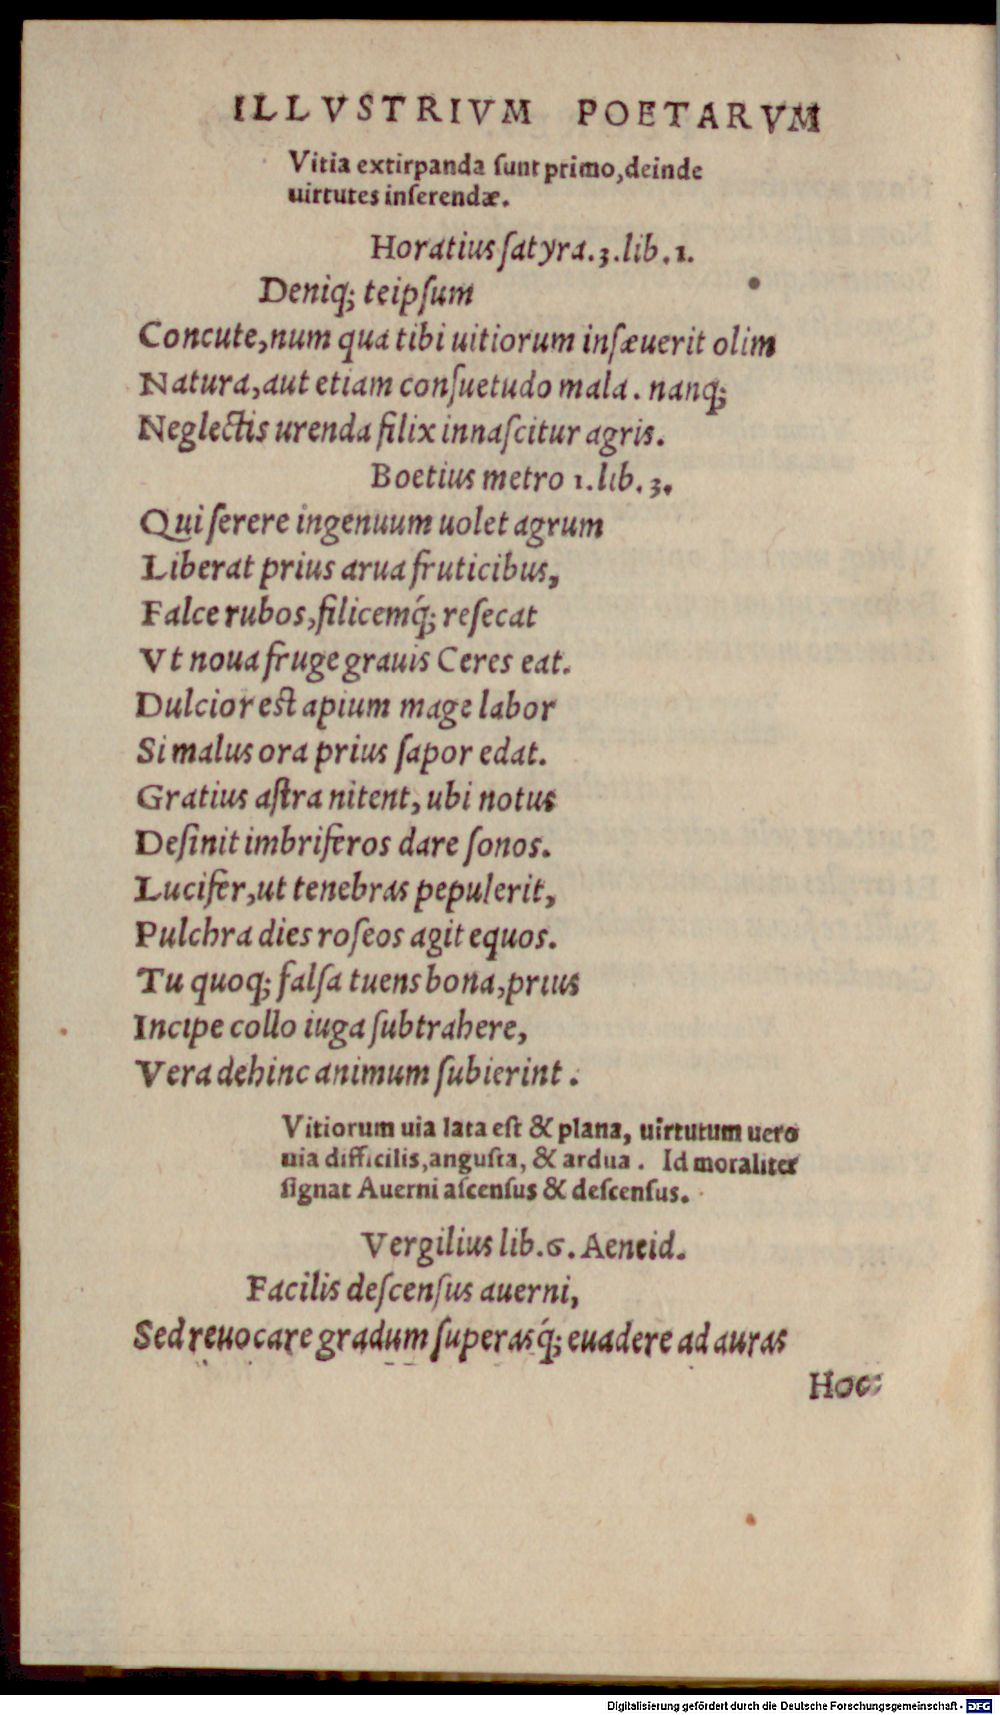 ILLVSTRIVM POETARVM
Vitia extirpanda sunt primo, deinde
uirtutes inserendæ.
Horatius satyra.3.lib.1.
Deniq; teipsum
Concute, num qua tibi uitiorum insæuerit olim
Natura, aut etiam consuetudo mala. nanq;
Neglectis urenda filix innascitur agris.
Boetius metro 1.lib.3.
Qui serere ingenuum uolet agrum
Liberat prius arua fruticibus,
Falce rubos, filicemq́; resecat
Vt noua fruge grauis Ceres eat.
Dulcior est apium mage labor
Si malus ora prius sapor edat.
Gratius astra nitent, ubi notus
Desinit imbriferos dare sonos.
Lucifer, ut tenebras pepulerit,
Pulchra dies roseos agit equos.
Tu quoq; falsa tuens bona, prius
Incipe collo iuga subtrahere,
Vera dehinc animum subierint.
Vitiorum uia lata est & plana, uirtutum uero
uia difficilis, angusta, & ardua. Id moraliter
signat Auerni ascensus & descensus.
Vergilius lib.6. Aeneid.
Facilis descensus auerni,
Sed reuocare gradum superasq́; euadere ad auras
Hoc
Digitalisierung gefördert durch die Deutsche Forschungsgemeinschaft - DFG